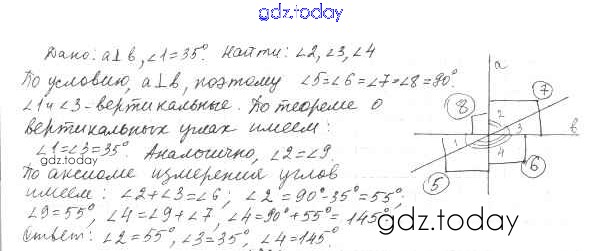 gdz.today
Дано: a⊥b, ∠1=35°. Найти: ∠2, ∠3, ∠4
По условию, a⊥b, поэтому ∠5=∠6=∠7=∠8=90°.
∠1 и ∠3 - вертикальные. По теореме о
вертикальных углах имеем:
∠1=∠3=35°. Аналогично, ∠2=∠9.
gdz.today
По аксиоме измерения углов
имеем: ∠2+∠3=∠6; ∠2=90°-35°=55°;
∠9=55°, ∠4=∠9+∠7, ∠4=90°+55°=145°
Ответ: ∠2=55°, ∠3=35°, ∠4=145°
a
7
8
2
3
в
1
4
5
6
gdz.today